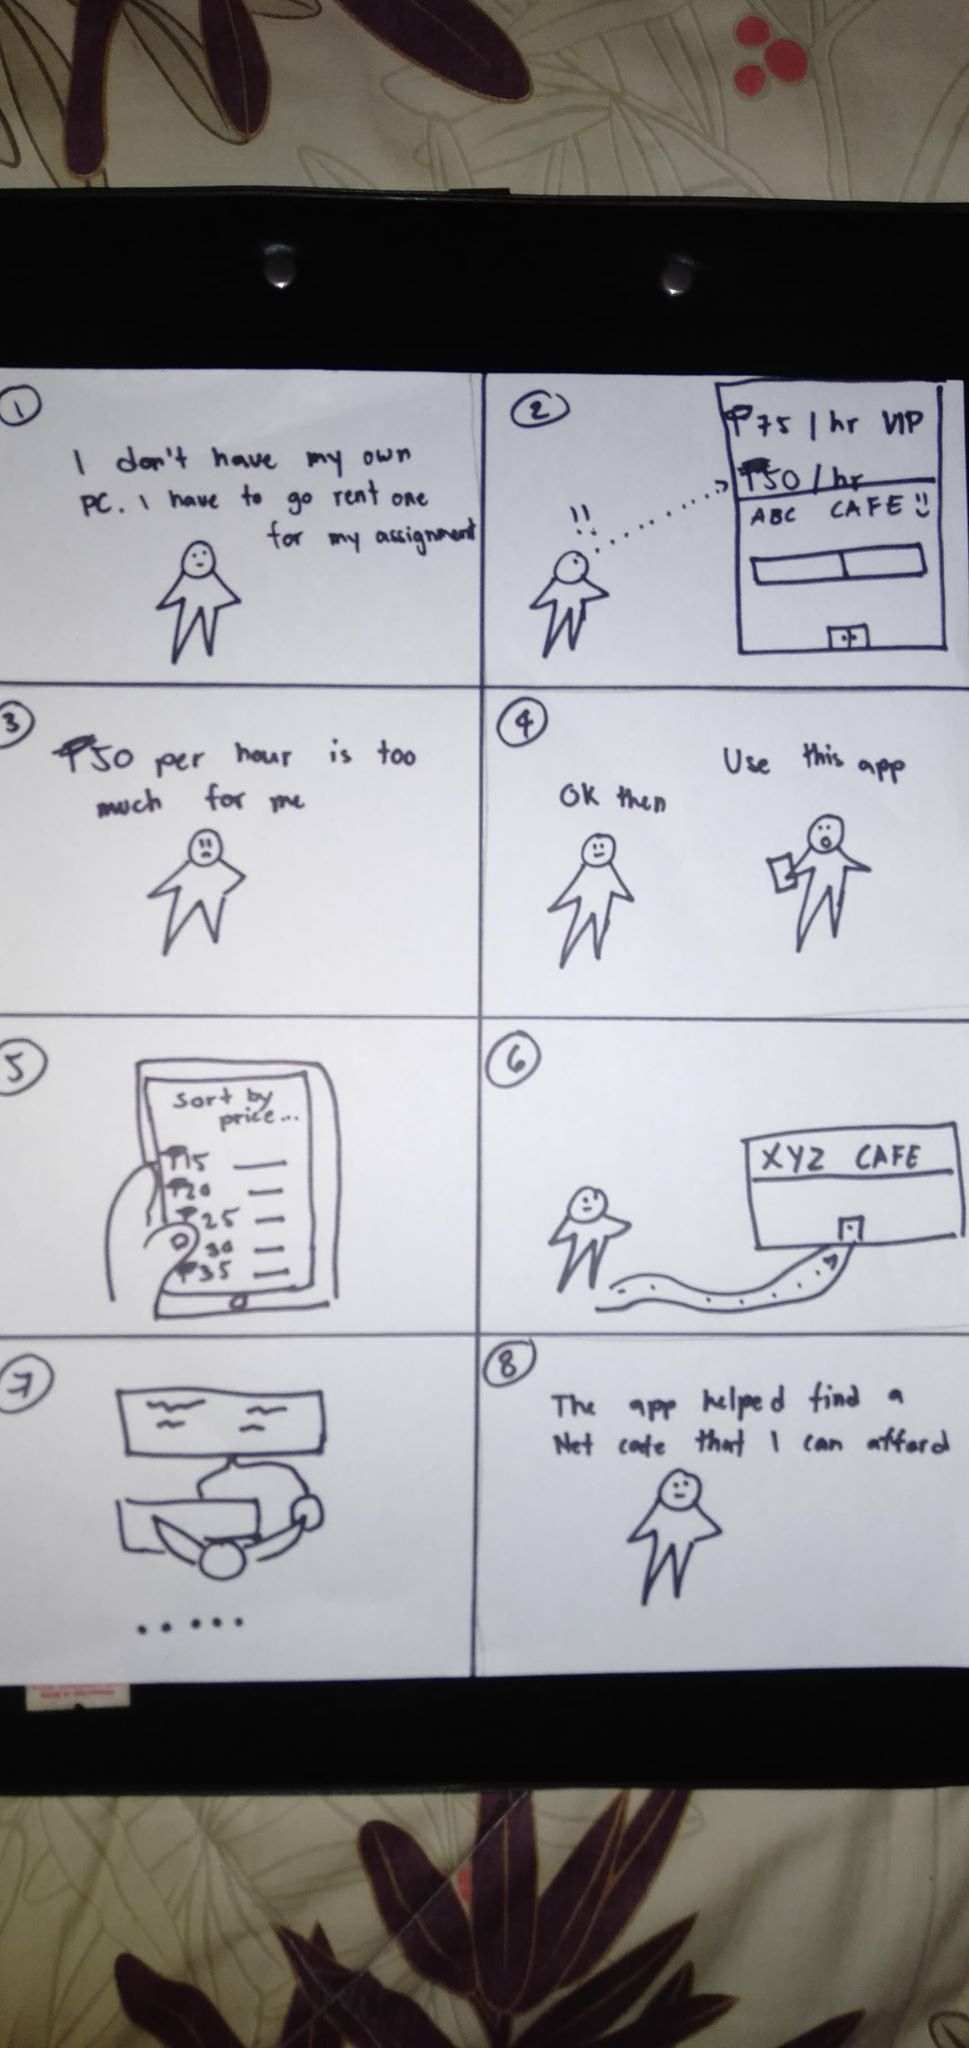 1
I don't have my own
PC. I have to go rent one
for my assignment
2
₱75 / hr VIP
₱50 / hr
ABC CAFE
3
₱50 per hour is too
much for me
4
Use this app
OK then
5
Sort by
price...
₱15
₱20
₱25
30
₱35
6
XYZ CAFE
7
8
The app helped find a
Net cafe that I can afford